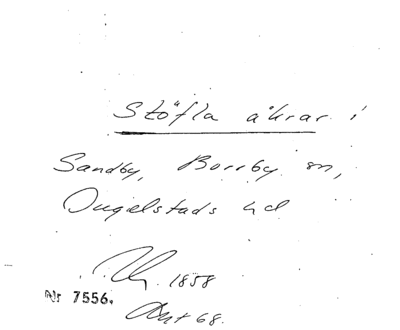 Stöfla åkrar i
Sandby, Borrby sn,
Ingelstads hd
1858
Nr 7556.
68.